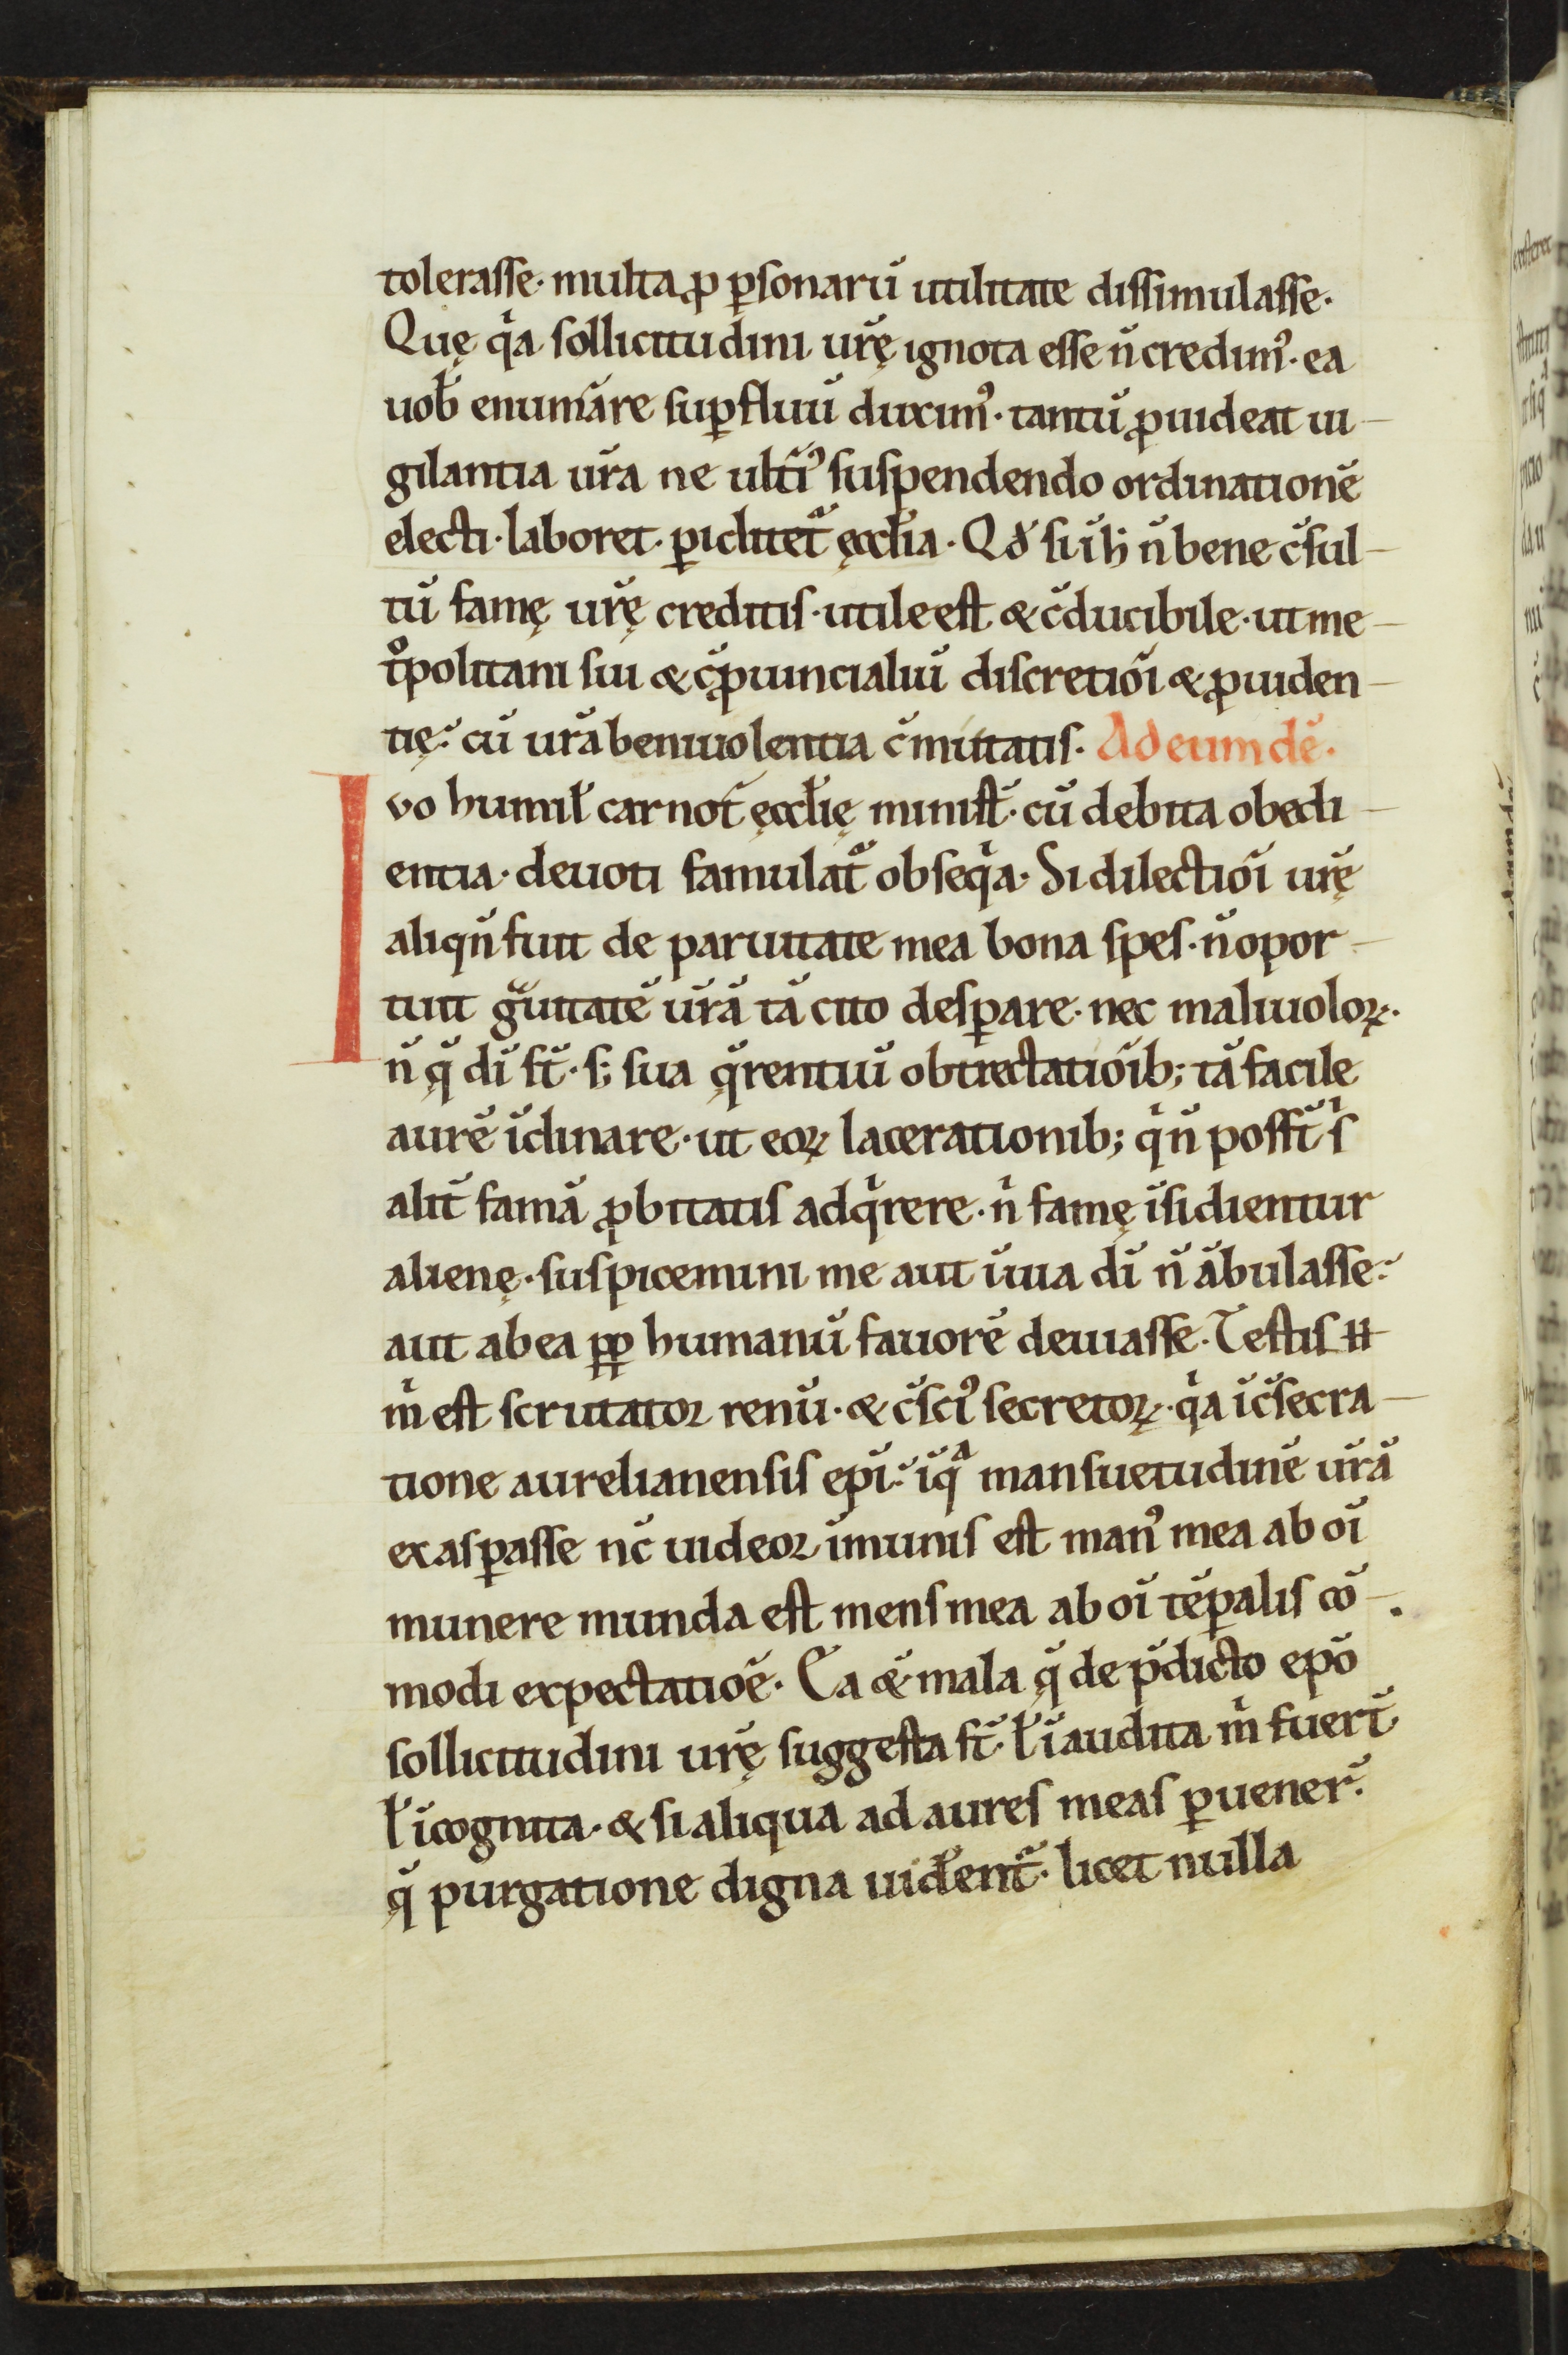 tolerasse· multa ꝓ ꝑsonarū utilitate dissimulasse·
Quę qͥa sollicitudini ur̄ę ignota esse n̄ credim᷒· ea
uob̄ enum̄are suꝑfluū duxim᷒· tantū ꝓuideat ui-
gilantia ur̄a ne ult̄i᷒ suspendendo ordinationē
electi· laboret· ꝑiclitet᷑ ęccl̄ia· Qd̄ si ih̄ n̄ bene c̄sul-
tū famę ur̄ę creditis· utile est & c̄ducibile· ut me-
tͦpolitani sui & c̄ꝓuincialiū discretiōi & ꝓuiden-
tię· cū ur̄a beniuolentia c̄mittatis· Ad eumdē·
Ivo humil̄ carnot̄ ęccl̄ię minist̄· cū debita obedi-
entia· deuoti famulat᷒ obseqͥa· Si dilectiōi ur̄ę
aliqn̄ fuit de paruitate mea bona spes· n̄ opor-
tuit gͣuitatē ur̄ā tā cito desꝑare· nec maliuoloꝝ·
n̄ q̄ dī st̄· s; sua q̄rentiū obtrectatiōib; tā facile
aurē īclinare· ut eoꝝ lacerationib; qͥ n̄ poss̄t sͥ
alit̄ famā ꝓbitatis adqͥrere· nͥ famę īsidientur
alienę· suspicemini me aut ī uia dī n̄ ābulasse·
aut ab ea ꝓꝑ humanū fauorē deuiasse· Testis ⁒
mͥ est scrutator renū· & c̄sci᷒ secretoꝝ· qͥa ī c̄secra-
tione aurelianensis epī· ī qͣ mansuetudinē ur̄ā
exasꝑasse nc̄ uideor īmunis est man᷒ mea ab oī
munere munda est mens mea ab oī tēꝑalis cō-
modi expectatiōe· Ea & mala q̄ de p̄dicto epō
sollicitudini ur̄ę suggesta st̄· l̄ īaudita mͥ fuer̄t
l̄ īcognita· & si aliqua ad aures meas ꝑuener̄·
q̄ purgatione digna uid̄ent᷑· licet nulla